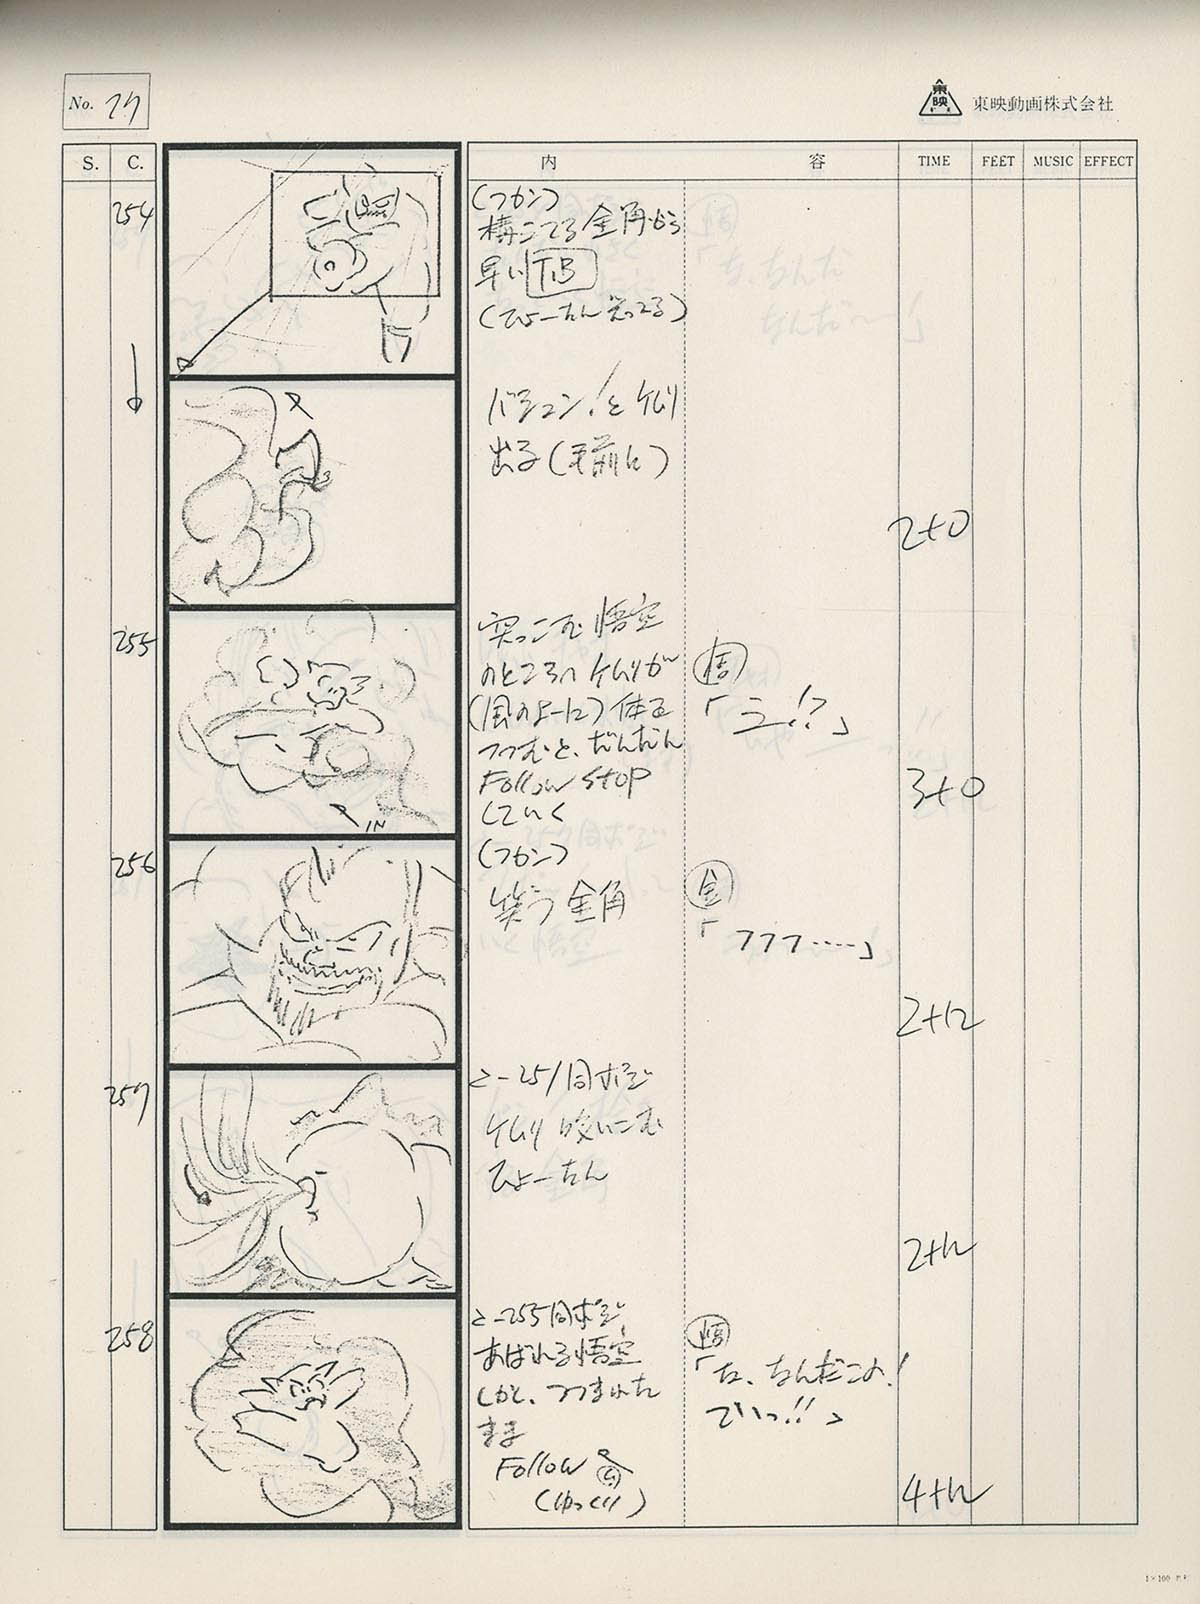 No. 27
東映
東映動画株式会社
S. C. 内 容 TIME FEET MUSIC EFFECT
254
(フカン)
構えてる金角から
早いT.B
(ひょーたん光ってる)
バシュン!とケムリ
出る(手前に)
2+0
255
突っこむ悟空
のところへケムリが
(風のよーに)体を
つつむと、だんだん
Follow stop
していく
IN
悟
「う!?」
3+0
256
(フカン)
笑う金角
金
「フフフ……」
2+12
257
C-251同ポジ
ケムリ吸いこむ
ひょーたん
2+12
258
C-255同ポジ
あばれる悟空
しかと、つつまれた
まま
Follow
(ゆっくり)
悟
「な、なんだこの!
でいっ!!」
4+12